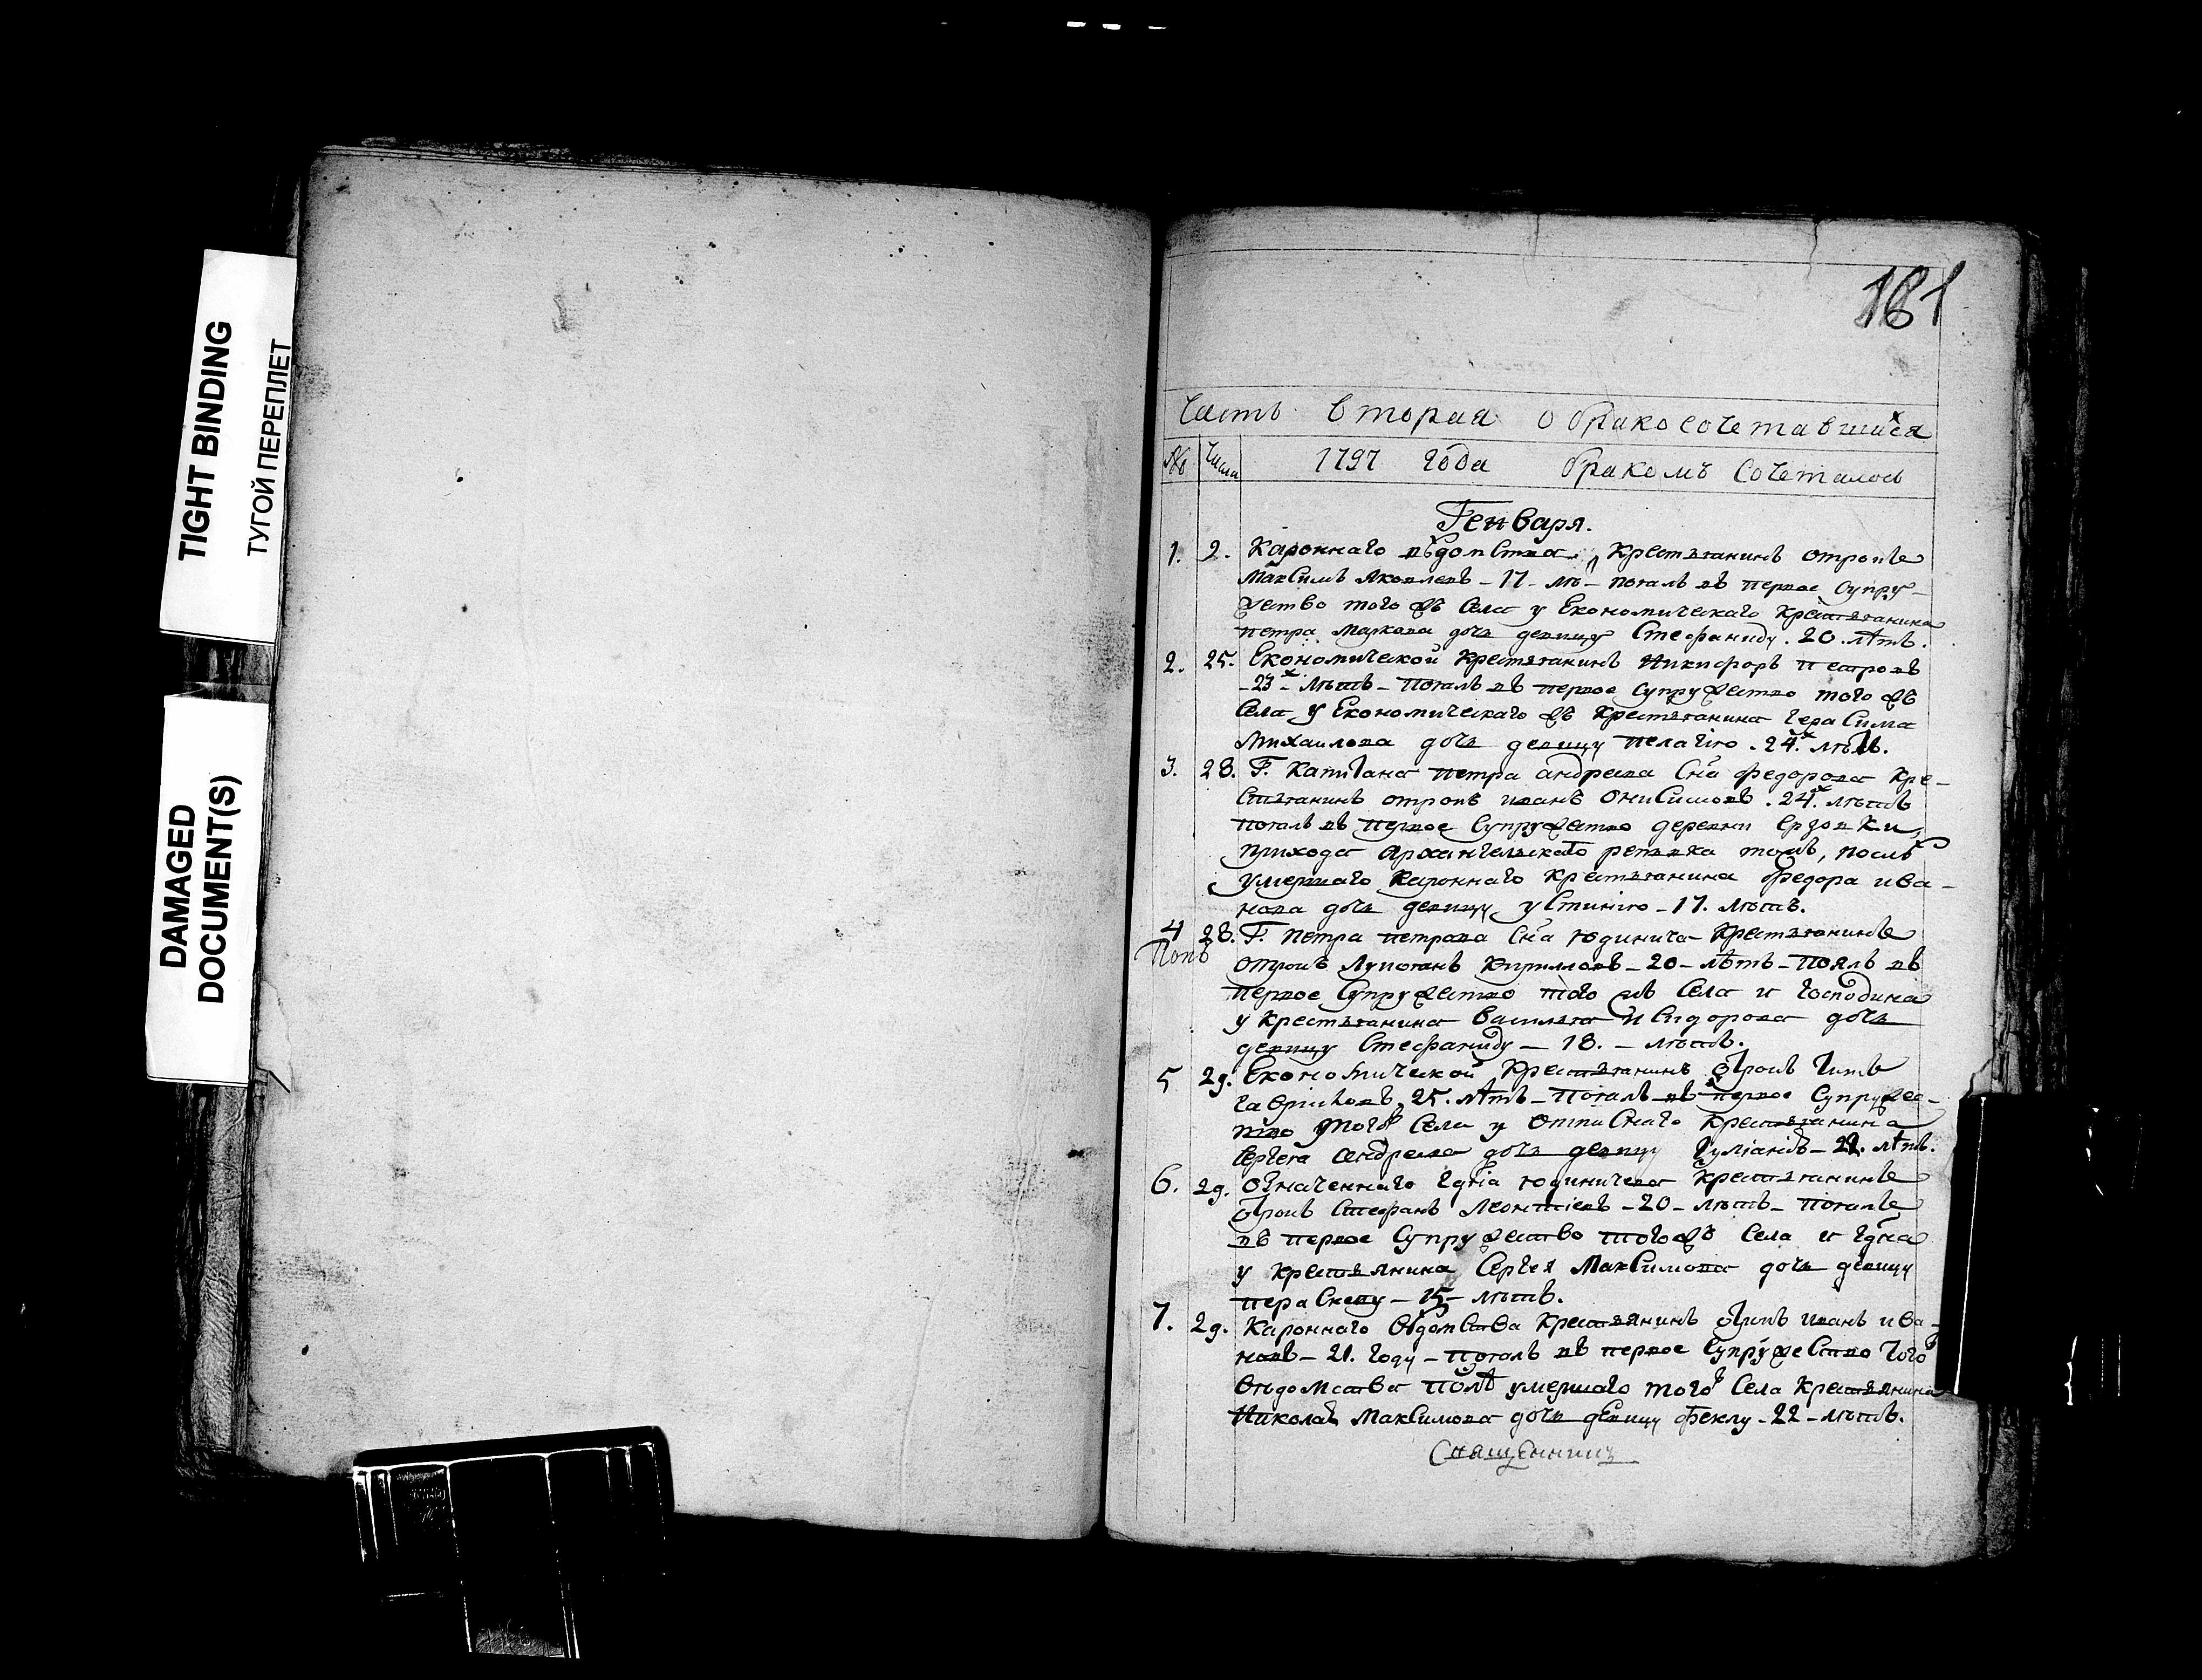 TIGHT BINDING
ТУГОЙ ПЕРЕПЛЕТ
DAMAGED
DOCUMENT(S)
181
Часть вторая о бракосочетавшихся
№ Числа 1797 года бракомъ сочеталось
Генваря.
1. 2. Кароннаго вѣдомства крестьянинъ отрокъ
Максимъ Яковлевъ – 17 – лѣ – поялъ въ первое супру-
жество того жъ села у економическаго крестьянина
Петра Маркова дочь девицу Стефаниду. 20. лѣтъ.
2. 25. Економической крестьянинъ Никифоръ Петровъ
– 23х – лѣтъ – поялъ въ первое супружество того жъ
села у економическаго жъ крестьянина Герасима
Михаилова дочь девицу Пелагію. 24х лѣтъ.
3. 28. Г. Капитана Петра Андреева сна Федорова кре-
стьянинъ отрокъ Иванъ Онисимовъ. 24х лѣтъ
поялъ въ первое супружество деревни Ерзовки,
прихода Архангельскаго, послѣ
умершаго кароннаго крестьянина Федора Ива-
нова дочь девицу Устинію – 17. лѣтъ.
4 28. Г. Петра Петрова сна Юдинича крестьянинъ
отрокъ Кирилловъ – 20 – лѣтъ – поялъ въ
первое супружество того жъ села и господина
у крестьянина Василья Сидорова дочь
девицу Стефаниду – 18. – лѣтъ.
5 29. Економической крестьянинъ отрокъ Титъ
Гавриловъ, 25. лѣтъ – поялъ въ первое супруже-
ство того села у отписнаго крестьянина
Сергея Андреева дочь девицу – лѣтъ.
6. 29. Означеннаго гдна Юдиничева крестьянинъ
отрокъ Стефанъ Леонтіевъ – 20 – лѣтъ – поялъ
въ первое супружество того жъ села и гдна
у крестьянина Сергея Максимова дочь девицу
Парасковію – 15 – лѣтъ.
7. 29. Кароннаго вѣдомства крестьянинъ отрокъ Иванъ Ива-
новъ – 21. году – поялъ въ первое супружество того
вѣдомства послѣ умершаго того села крестьянина
Николая Максимова дочь девицу Феклу – 22 – лѣтъ.
Священникъ